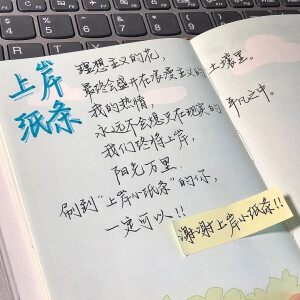 上岸
纸条
理想主义的花，
最终会盛开在浪漫主义的土壤里。
我的热情，
永远不会熄灭在现实的平凡之中。
我们终将上岸，
阳光万里
刷到“上岸小纸条”的你，
一定可以!!
谢谢上岸小纸条!!